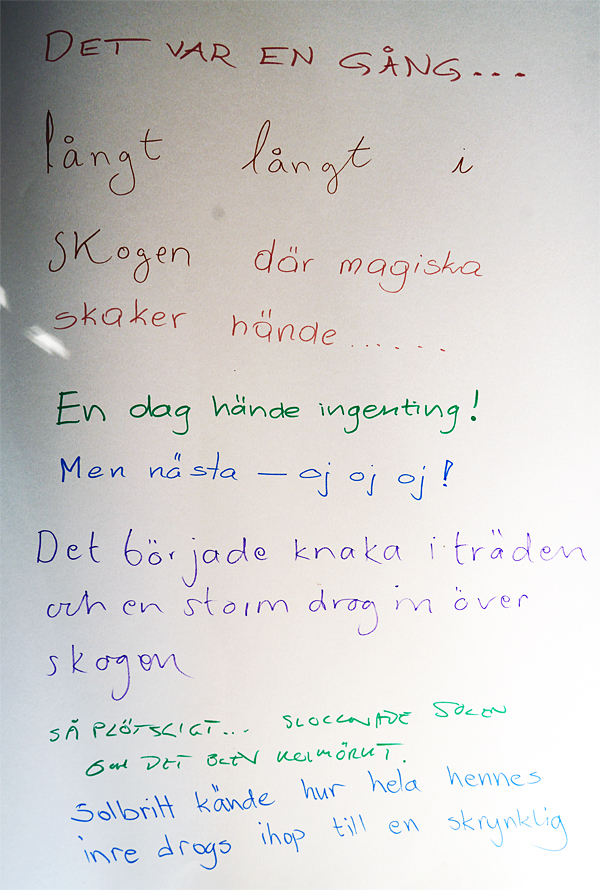 DET VAR EN GÅNG...
långt långt i
SKogen där magiska
skaker hände......
En dag hände ingenting!
Men nästa — oj oj oj!
Det började knaka i träden
och en storm drog in över
skogen
SÅ PLÖTSLIGT... SLOCKNADE SOLEN
OCH DET BLEV KOLMÖRKT.
Solbritt kände hur hela hennes
inre drogs ihop till en skrynklig